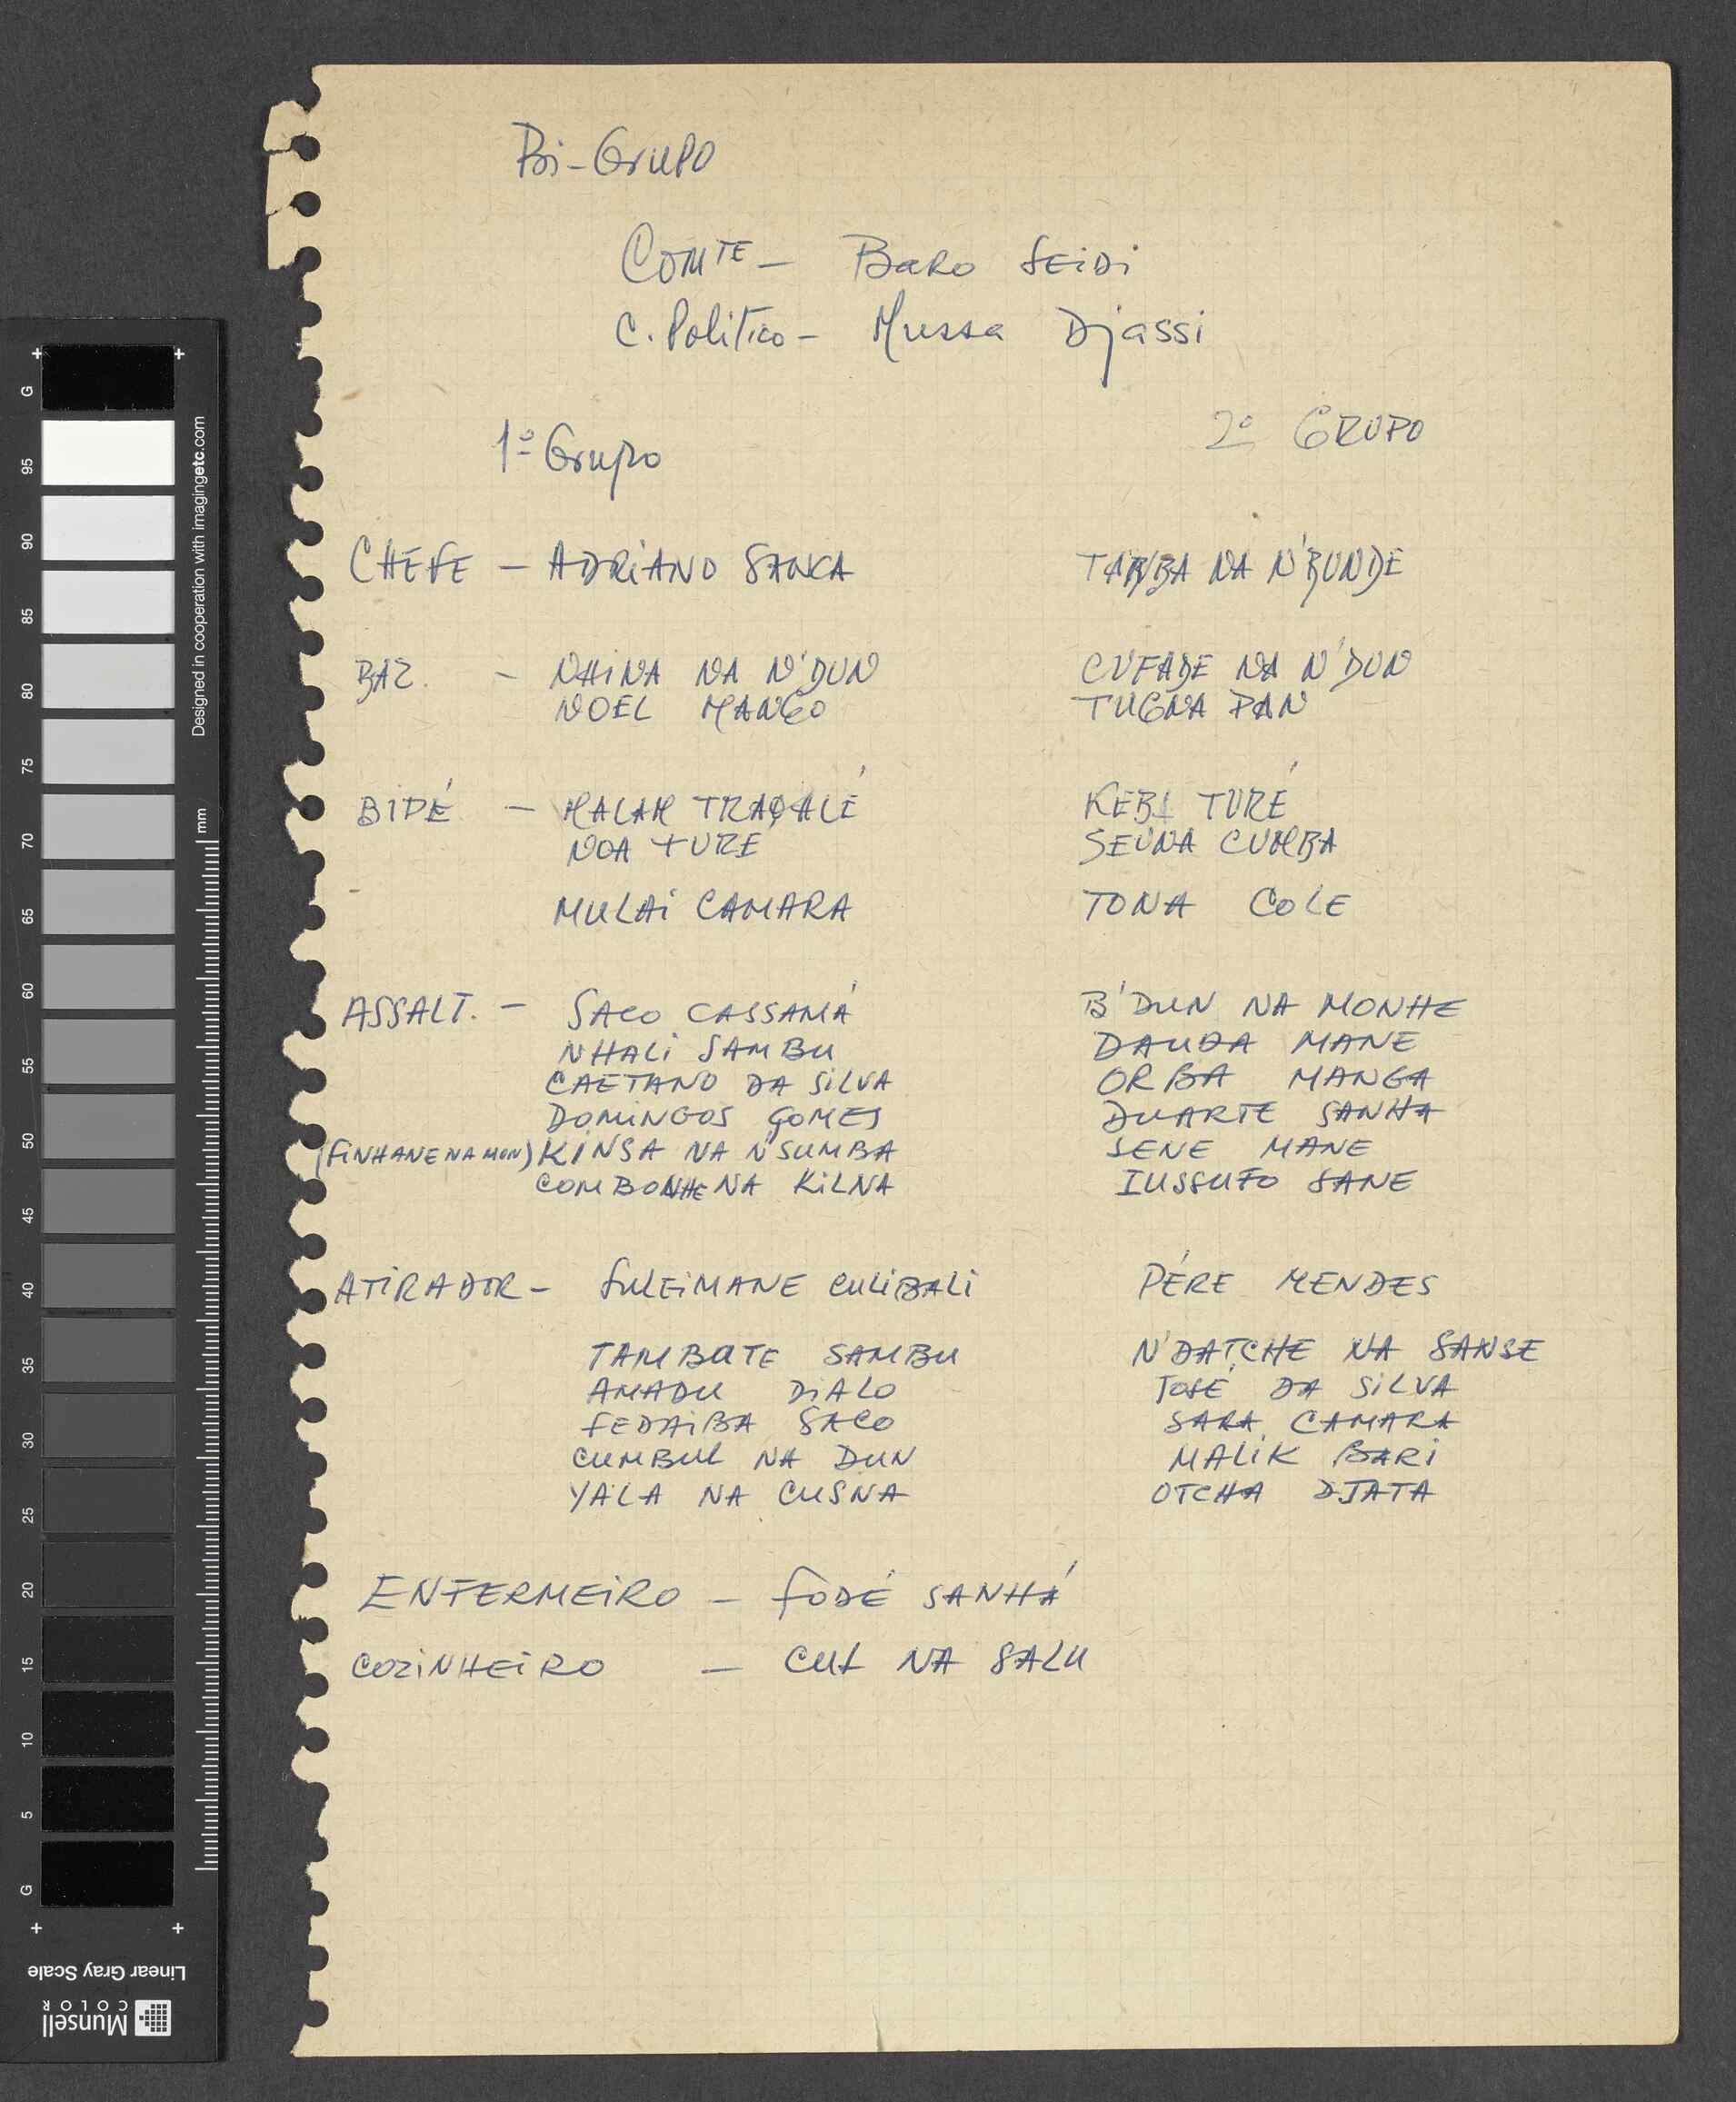 Bi-Grupo
Comte - Baro Seidi
C. Politico - Mussa Djassi
1º Grupo 2º GRUPO
CHEFE - ADRIANO SANCA NA N'BUNDE
BAZ. - NHINA NA N'DUN CUFADE NA N'DUN
NOEL MANGO TUGNA PAN
BIPÉ - MALAM KEBI TURÉ
NOA TURÉ SEUNA CUMBA
MULAI CAMARA TONA COLE
ASSALT. - SACO CASSAMÁ B'DUN NA MONHE
NHALI SAMBU DAUDA MANE
CAETANO DA SILVA ORBA MANGA
DOMINGOS GOMES DUARTE SANHA
(FINHANE NA MON) KINSA NA N'SUMBA SENE MANE
COMBONHE NA KILNA IUSSUFO SANE
ATIRADOR - SULEIMANE CULIBALI PÉRE MENDES
TAMBATE SAMBU N'DATCHE NA SANSE
AMADU DIALO JOSÉ DA SILVA
FEDAIBA SACO SARA CAMARA
CUMBUL NA DUN MALIK BARI
YALA NA CUSNA OTCHA DJATA
ENFERMEIRO - FODÉ SANHÁ
COZINHEIRO - NA SALU
G
95
90
85
80
75
70
65
60
55
50
45
40
35
30
25
20
15
10
5
G
Designed in cooperation with imagingetc.com
mm
Linear Gray Scale
Munsell
COLOR